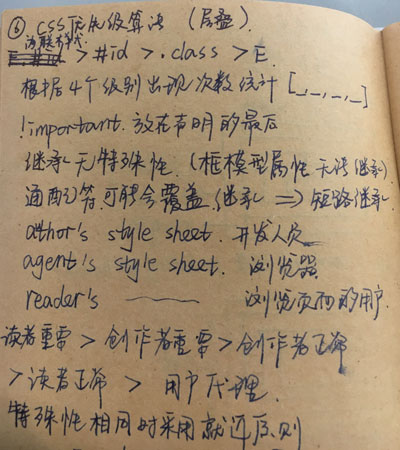 ⑥. CSS优先级算法 (层叠).
内联样式 > #id > .class > E.
根据4个级别出现次数统计 [_,_,_,_]
!important. 放在声明的最后
继承无特殊性. (框模型属性无法继承)
通配符可能会覆盖继承 => 短路继承.
author's style sheet. 开发人员
agent's style sheet. 浏览器
reader's 浏览页面的用户.
读者重要 > 创作者重要 > 创作者正常
> 读者正常 > 用户代理.
特殊性相同时采用就近原则